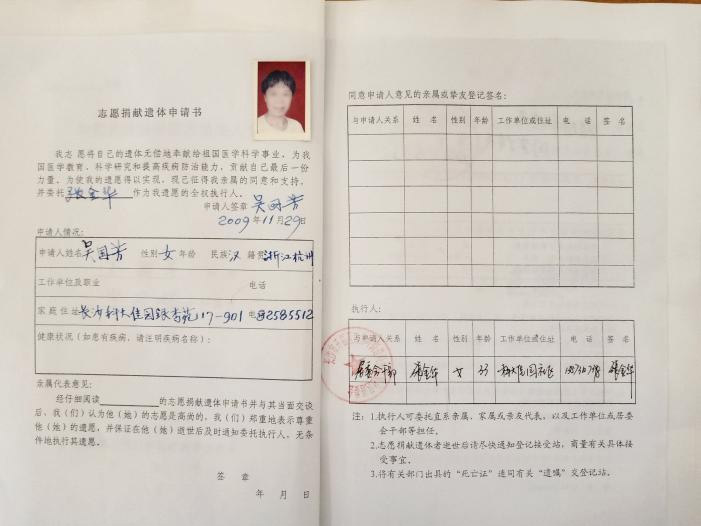 志愿捐献遗体申请书
我志愿将自己的遗体无偿地奉献给祖国医学科学事业，为我
国医学教育、科学研究和提高疾病防治能力，贡献自己最后一份
力量。为使我的遗愿得以实现，现已征得我亲属的同意和支持，
并委托张金华作为我遗愿的全权执行人。
申请人签章 吴国芳
2009年11月29日
申请人情况：
申请人姓名 吴国芳 性别 女 年龄 民族 汉 籍贯 浙江杭州
工作单位及职业 电话
家庭住址 长沙科大佳园银杏苑17-901 电话 82585512
健康状况（如患有疾病，请注明疾病名称）：
亲属代表意见：
经仔细阅读的志愿捐献遗体申请书并与其当面交谈
后，我（们）认为他（她）的志愿是高尚的，我（们）郑重地表示尊重
他（她）的遗愿，并保证在他（她）逝世后及时通知委托执行人，无条
件地执行其遗愿。
签 章
年 月 日
同意申请人意见的亲属或挚友登记签名：
与申请人关系 姓 名 性别 年龄 工作单位或住址 电 话 签 名
执行人：
与申请人关系 姓 名 性别 年龄 工作单位或住址 电 话 签 名
居委会干部 张金华 女 33 科大佳园社区 张金华
注：1.执行人可委托直系亲属、家属或亲友代表，以及工作单位或居委
会干部等担任。
2.志愿捐献遗体者逝世后请尽快通知登记接受站，商量有关具体接
受事宜。
3.将有关部门出具的“死亡证”连同有关“遗嘱”交登记站。